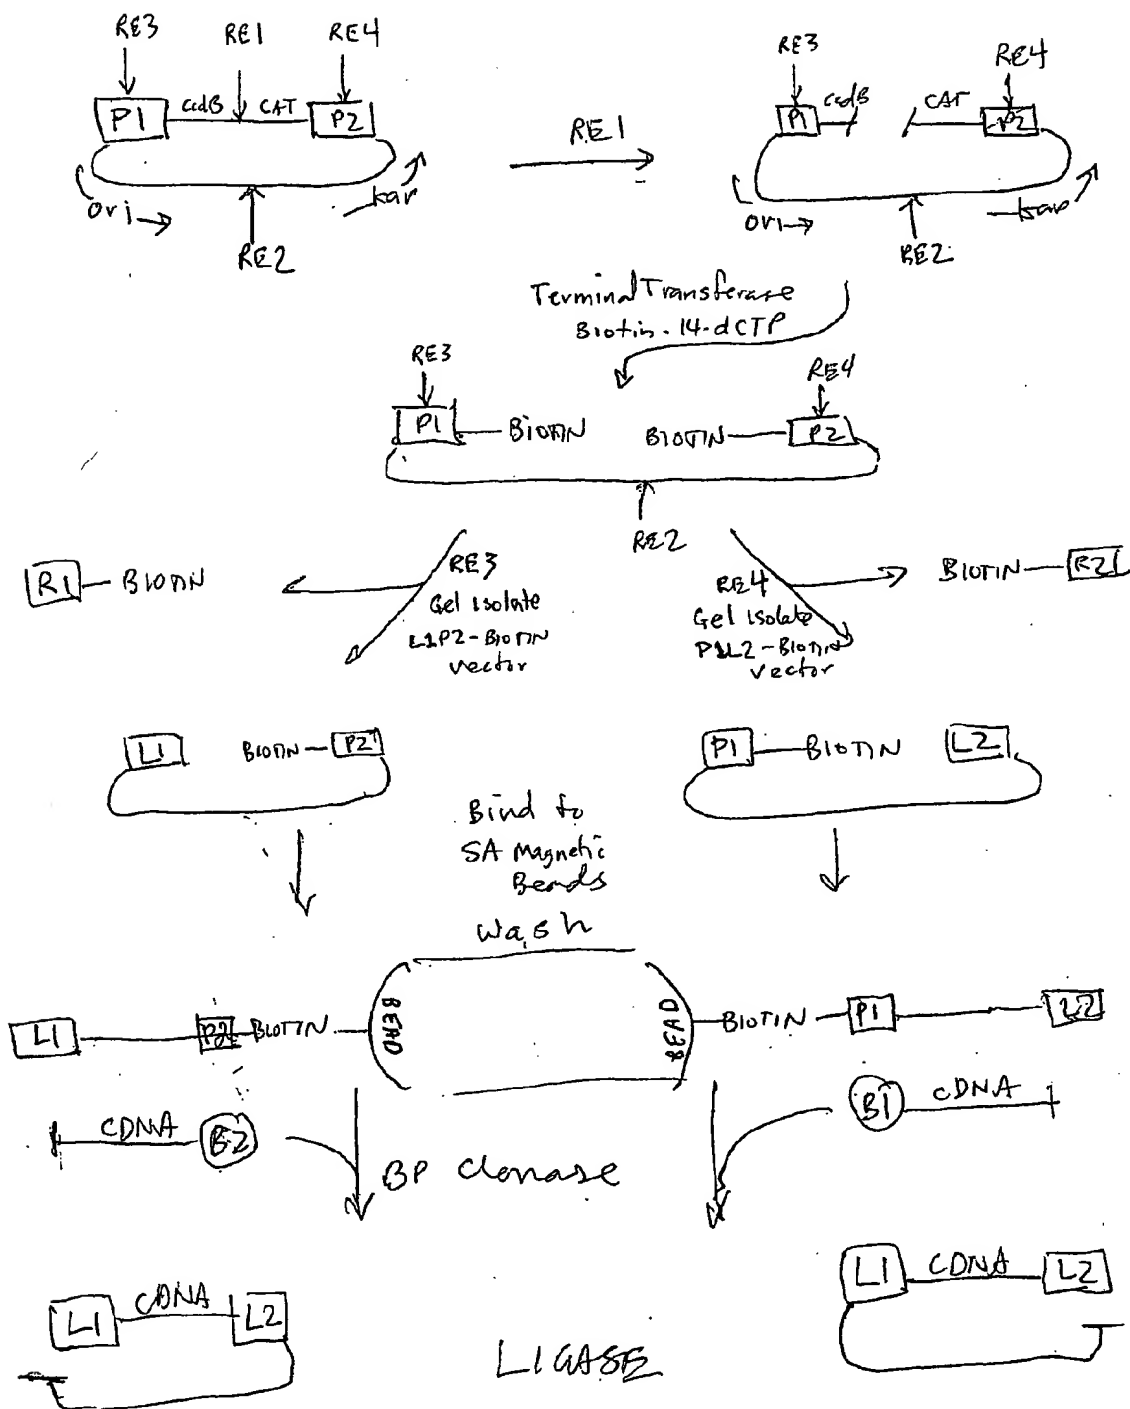 RE3 RE1 RE4
P1 ccdB CAT P2
ori kar
RE2
RE1
RE3 RE4
P1 ccdB CAT P2
ori kan
RE2
Terminal Transferase
Biotin-14-dCTP
RE3 RE4
P1 BIOTIN BIOTIN P2
RE2
R1 BIOTIN
RE3
Gel isolate
L1P2-BIOTIN
vector
RE4
Gel isolate
P1L2-BIOTIN
vector
BIOTIN R2
L1 BIOTIN P2
P1 BIOTIN L2
Bind to
SA Magnetic
Beads
Wash
L1 P2 BIOTIN BEAD
BEAD BIOTIN P1 L2
CDNA B2
B1 cDNA
BP Clonase
L1 cDNA L2
L1 CDNA L2
LIGASE